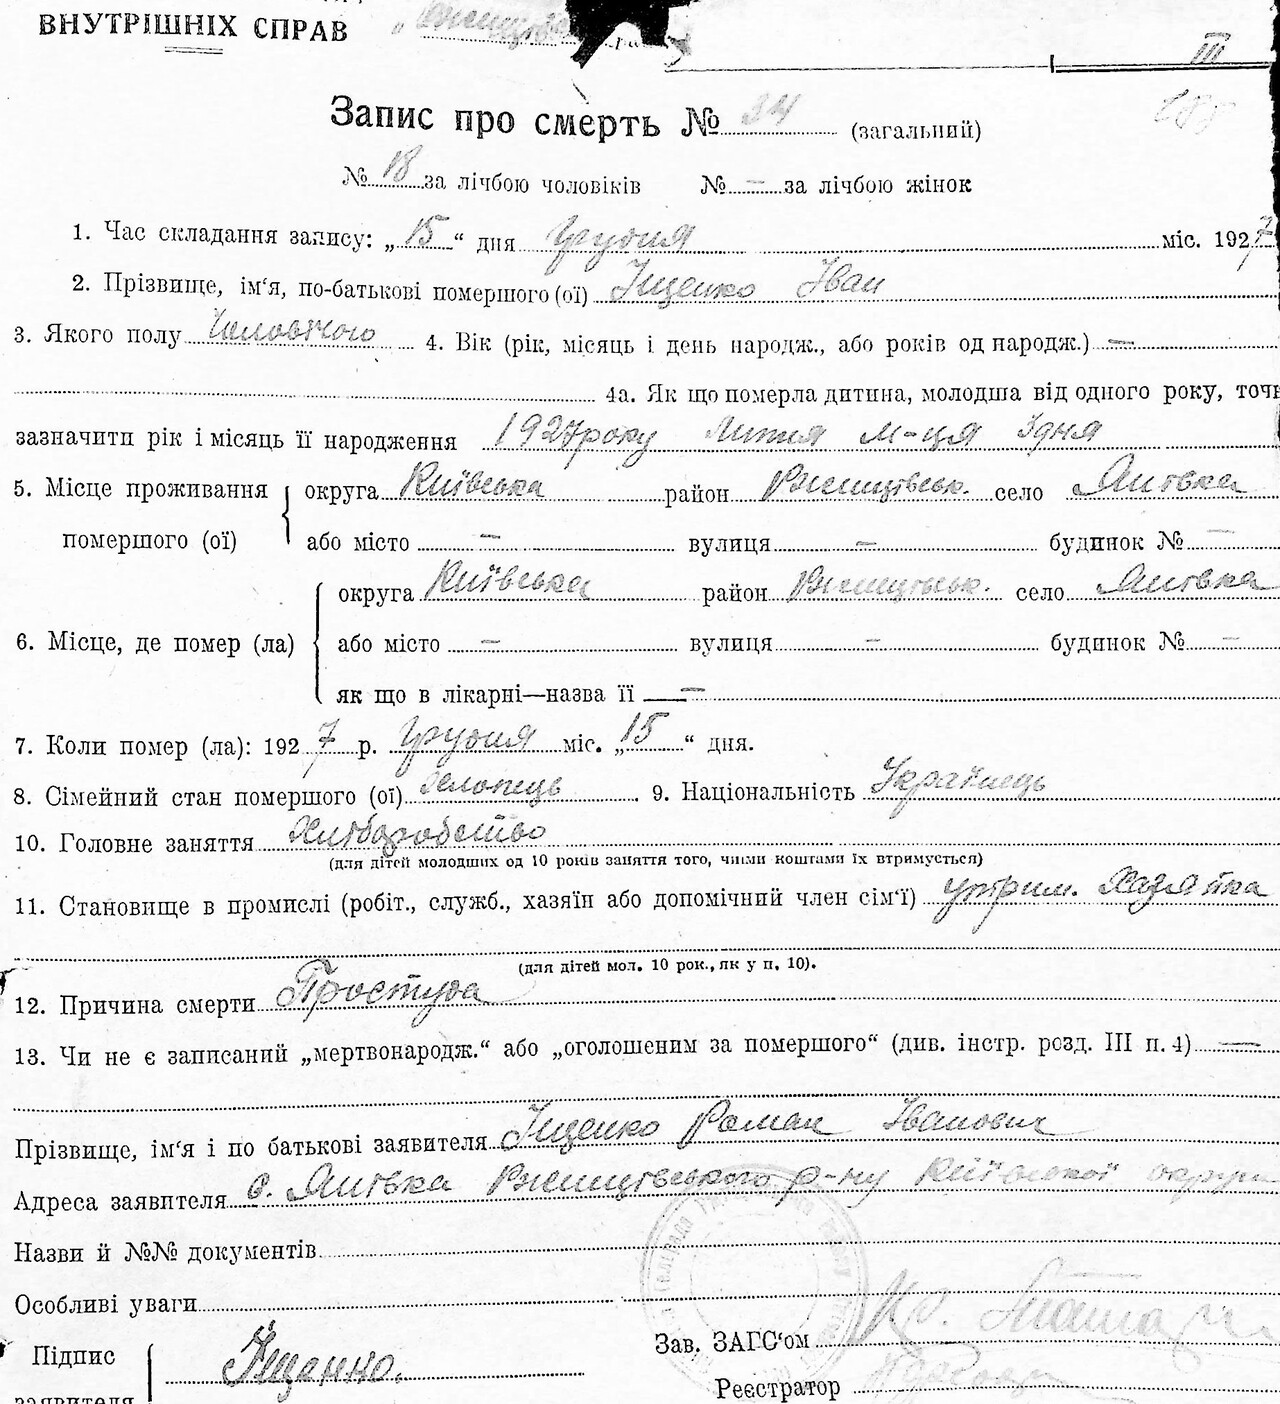 ВНУТРІШНІХ СПРАВ
III
Запис про смерть № 34 (загальний)
№ 18 за лічбою чоловіків № — за лічбою жінок
1. Час складання запису: „15“ дня Грудня міс. 1927
2. Прізвище, ім'я, по-батькові помершого (ої) Іщенко Іван
3. Якого полу Чоловічого 4. Вік (рік, місяць і день народж., або років од народж.) —
4а. Як що померла дитина, молодша від одного року, точн
зазначити рік і місяць її народження 1927 року Липня м-ця 3 дня
5. Місце проживання округа Київська район Ржищівськ. село Яблівка
помершого (ої) або місто — вулиця — будинок № —
округа Київська район Ржищівськ. село
6. Місце, де помер (ла) або місто — вулиця — будинок № —
як що в лікарні—назва її —
7. Коли помер (ла): 1927 р. Грудня міс. „15“ дня.
8. Сімейний стан помершого (ої) Хлопець 9. Національність Українець
10. Головне заняття Хліборобство
(для дітей молодших од 10 років заняття того, чиїми коштами їх втримується)
11. Становище в промислі (робіт., служб., хазяїн або допомічний член сім'ї) утрим. Хазяїна
(для дітей мол. 10 рок., як у п. 10).
12. Причина смерти Простуда
13. Чи не є записаний „мертвонародж.“ або „оголошеним за помершого“ (див. інстр. розд. III п. 4) —
Прізвище, ім'я і по батькові заявителя Іщенко Роман Іванович
Адреса заявителя с. Ржищівського р-ну Київської округи
Назви й №№ документів
Особливі уваги
Підпис Іщенко. Зав. ЗАГС'ом
заявителя Реєстратор